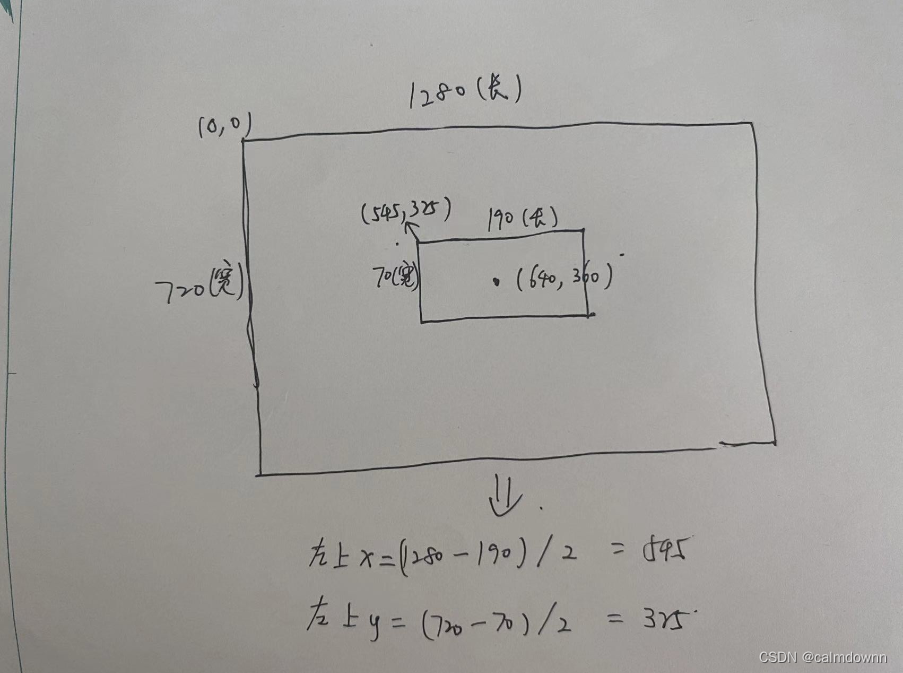 1280(长)
(0,0)
(545,325)
190(长)
720(宽)
70(宽)
(640,360)
左上x=(1280-190)/2 = 545
左上y=(720-70)/2 = 325
CSDN @calmdownn